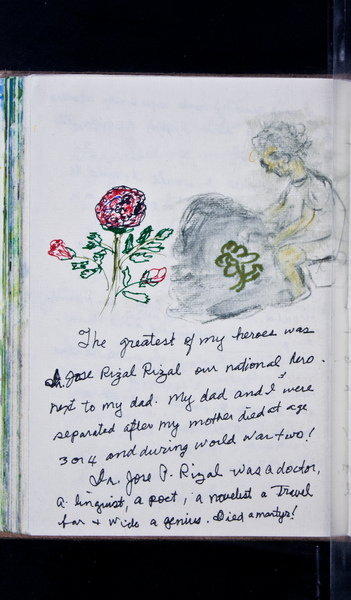 The greatest of my heroes was
Dr. Jose Rizal Rizal our national hero.
next to my dad. My dad and I were
separated after my mother died at age
3 or 4 and during world war two!
Dr. Jose P. Rizal was a doctor,
a linguist, a poet, a novelist a Travel
far + wide a genius. Died a martyr!